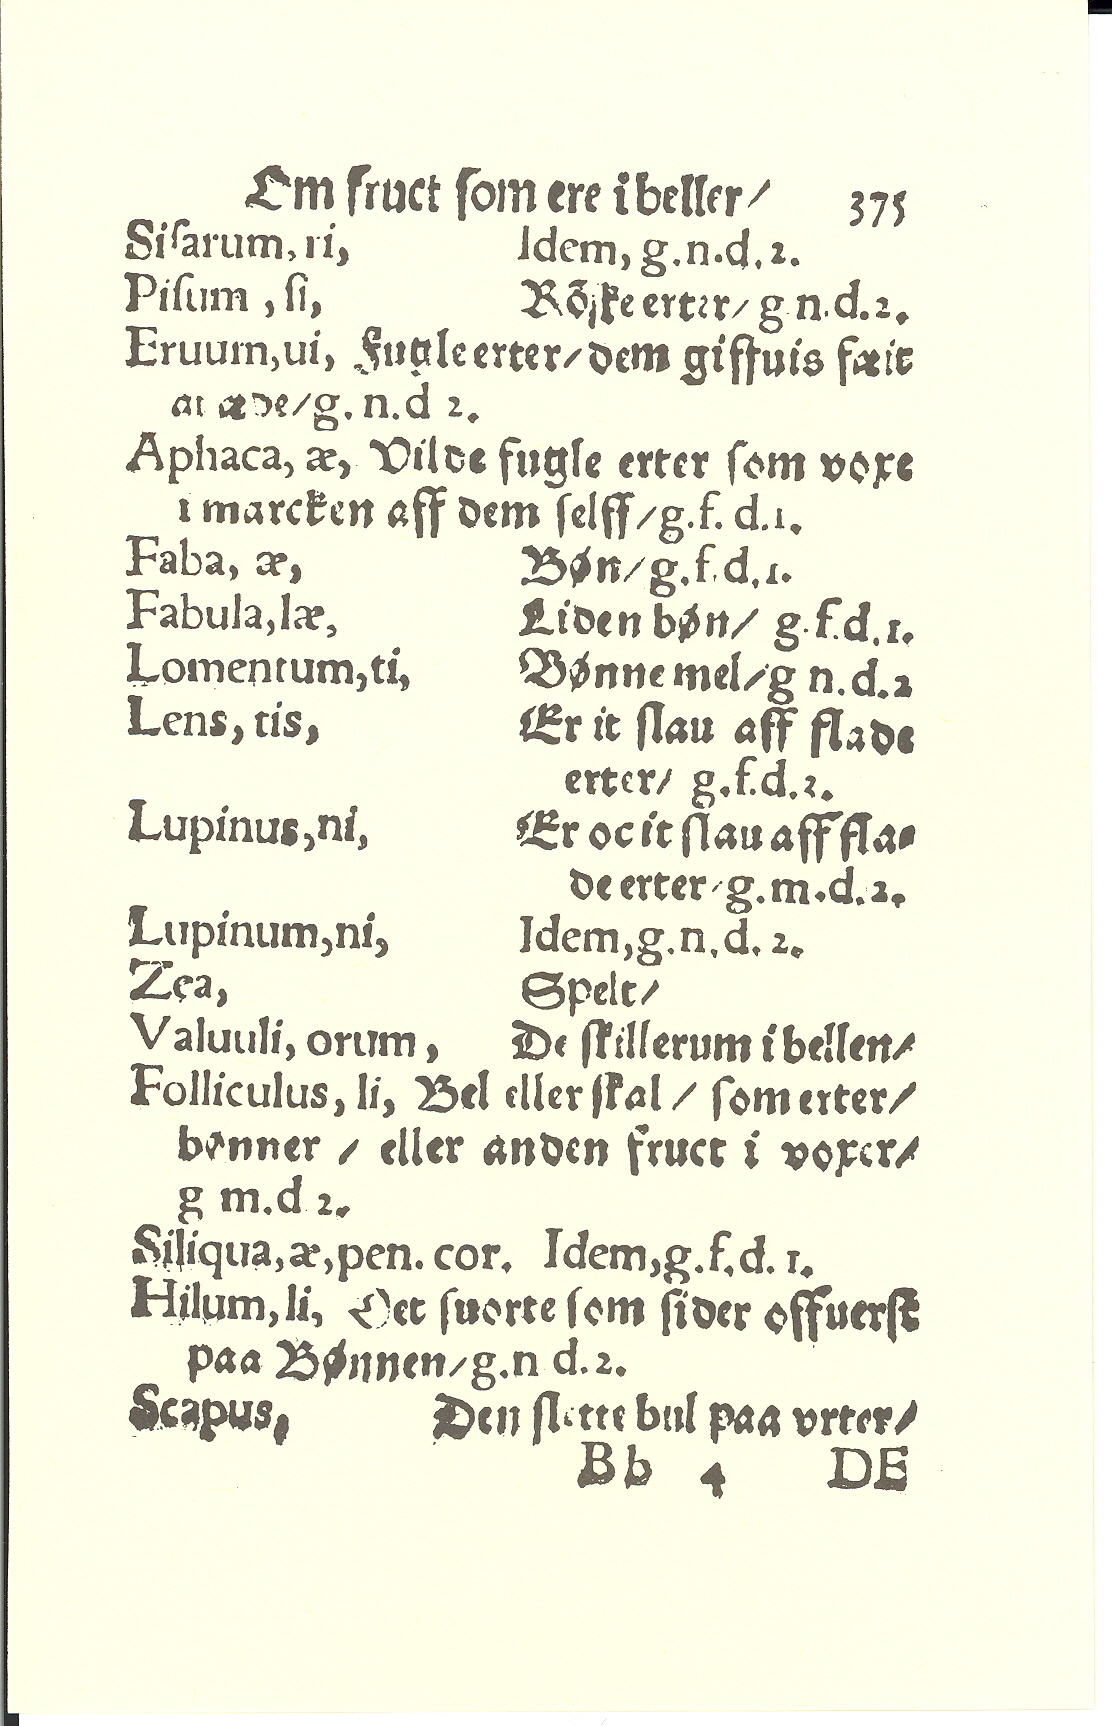 Om fruct som ere i beller/ 375
Siſarum, ri, Idem, g.n.d.2.
Piſum, ſi, Röſke erter/ g n.d.2.
Eruum, ui, Fugle erter/ dem giffuis fæit
at æde/ g. n.d 2.
Aphaca, æ, Vilde fugle erter ſom voxe
i marcken aff dem ſelff/ g.f. d.1.
Faba, æ, Bøn/ g.f.d.1.
Fabula, læ, Liden bøn/ g.f.d.1.
Lomentum, ti, Bønne mel/ g n.d.2
Lens, tis, Er it ſlau aff flade
erter/ g.f.d.2.
Lupinus, ni, Er oc it ſlau aff fla-
de erter/ g.m.d.2.
Lupinum, ni, Idem, g.n.d. 2.
Zea, Spelt/
Valuuli, orum, De ſkillerum i bellen/
Folliculus, li, Bel eller ſkal/ ſom erter/
bønner / eller anden fruct i voxer/
g m.d 2.
Siliqua, æ, pen. cor. Idem, g.f.d. 1.
Hilum, li, Det ſuorte ſom ſider offuerſt
paa Bønnen/ g.n d.2.
Scapus, Den ſlette bul paa vrter/
Bb 4 DE